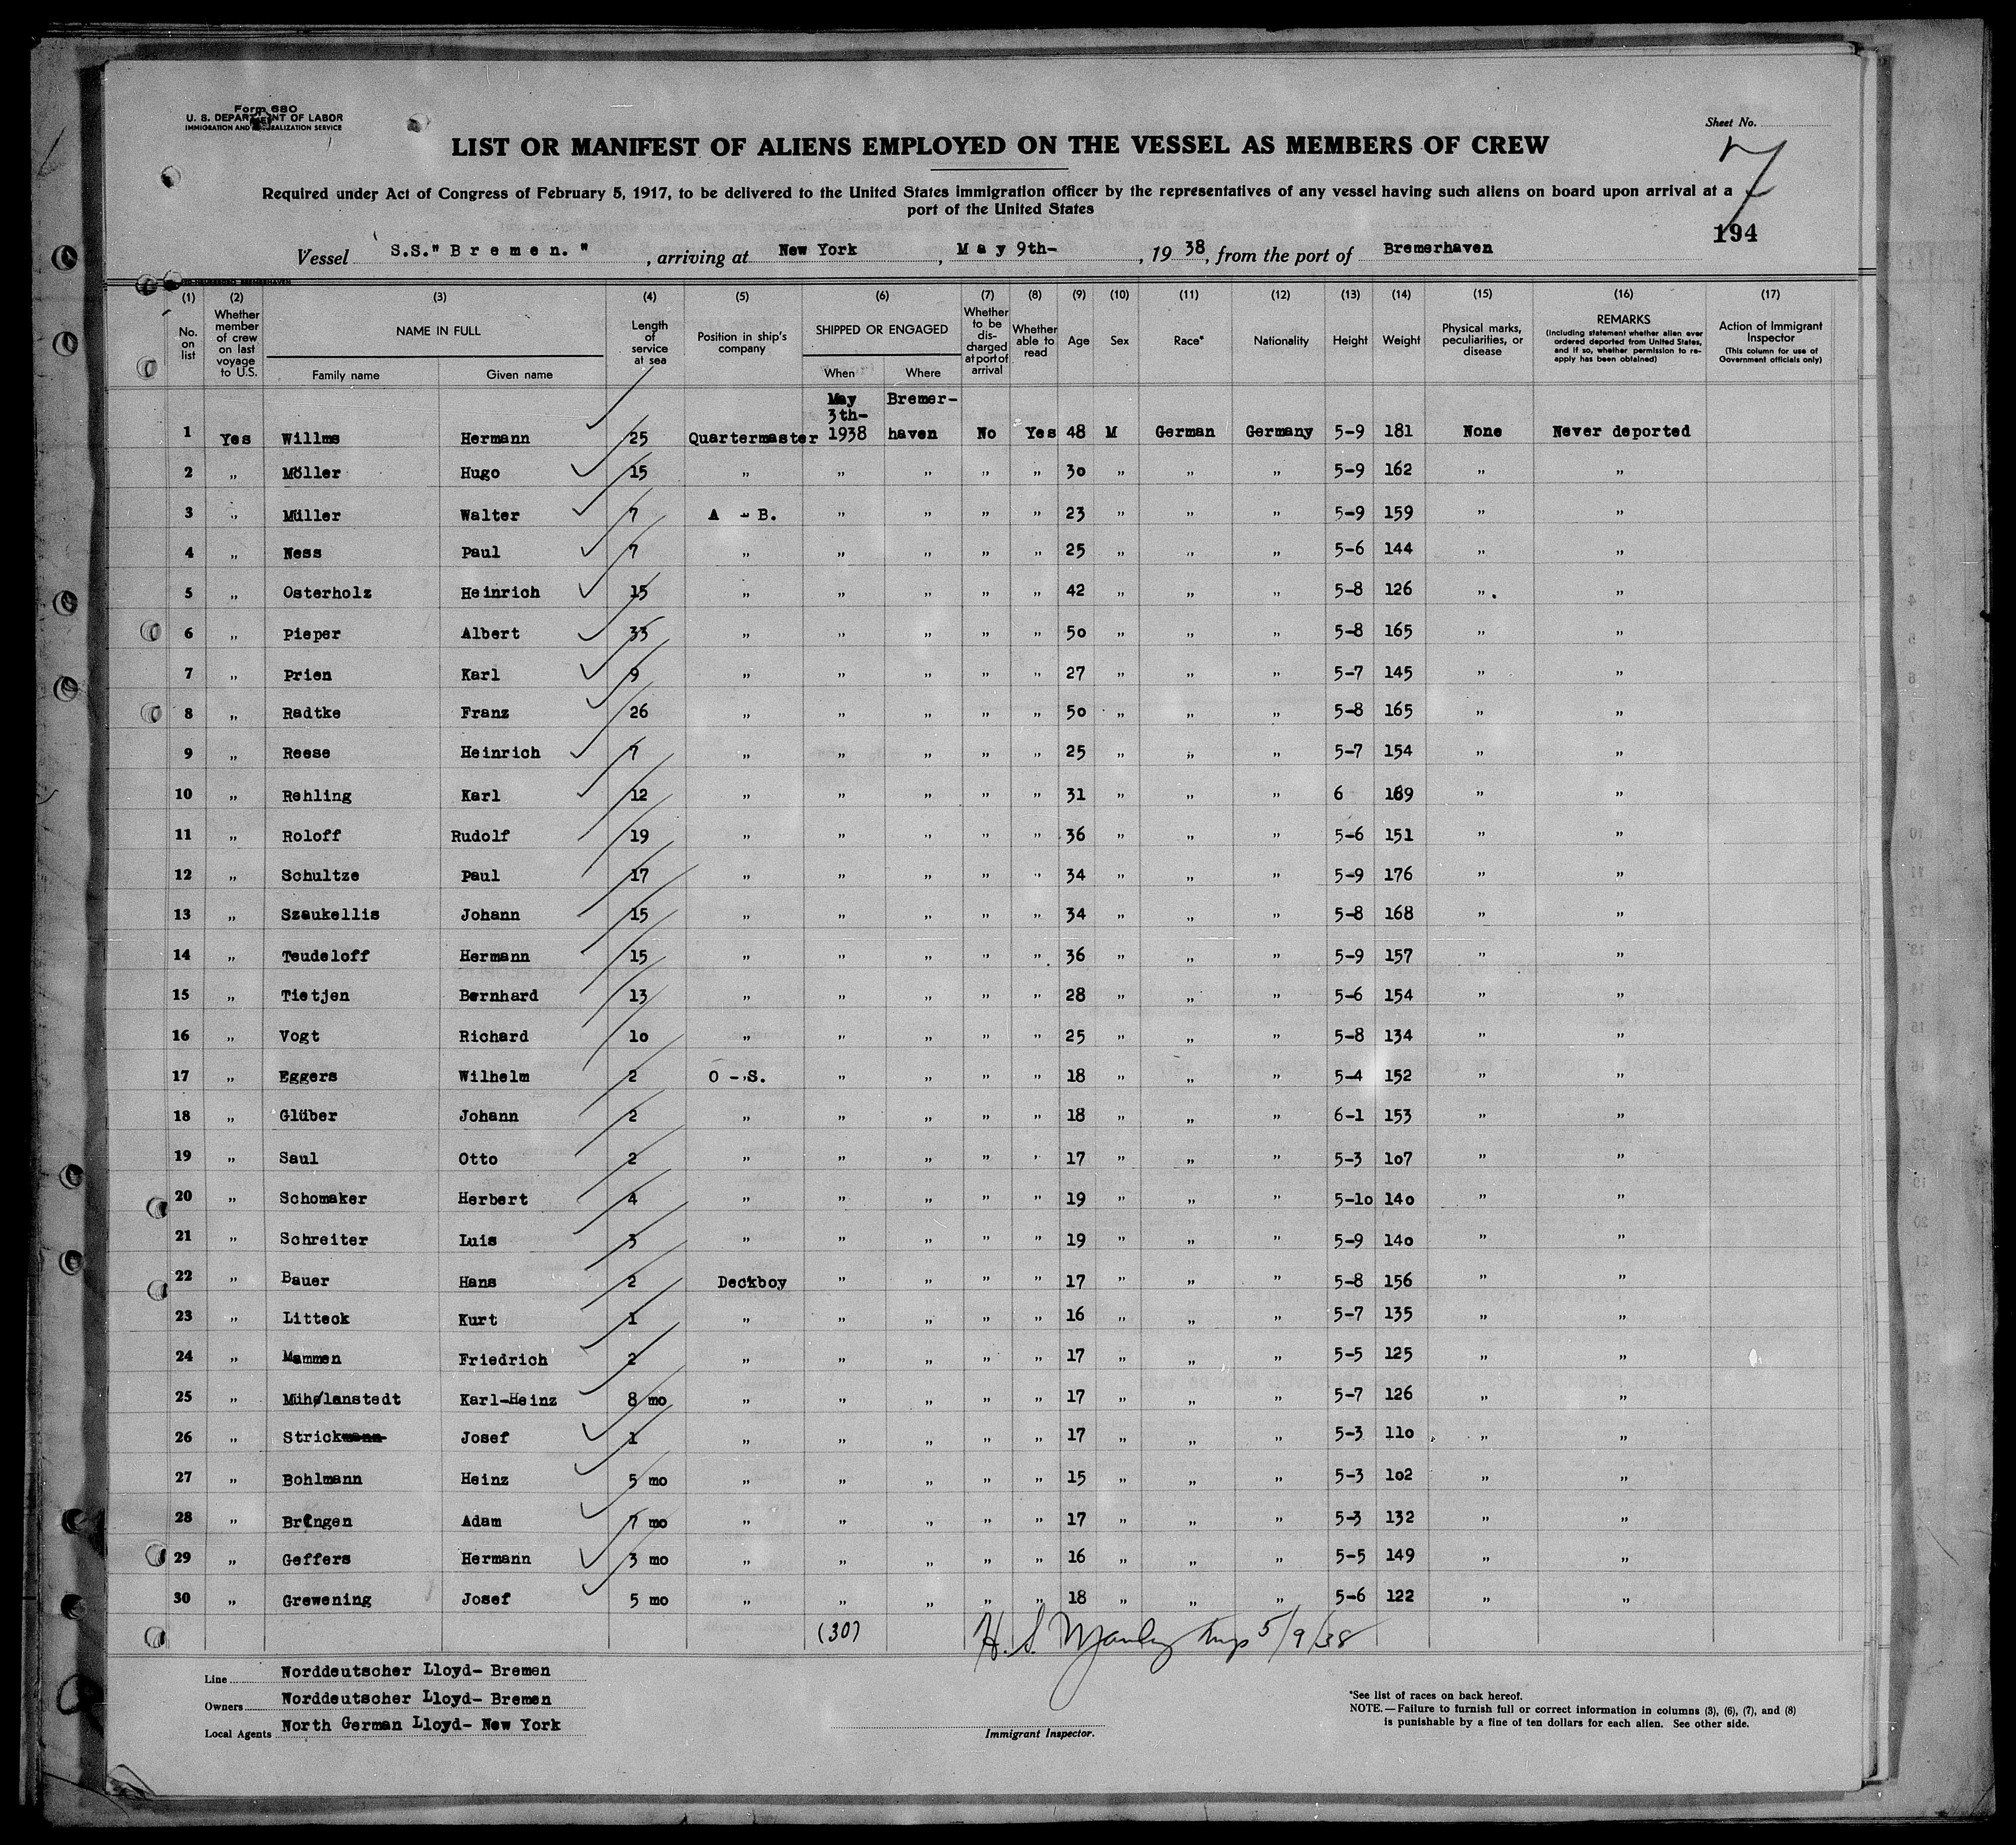 Form 680
U. S. DEPARTMENT OF LABOR
IMMIGRATION AND NATURALIZATION SERVICE
Sheet No.
7
LIST OR MANIFEST OF ALIENS EMPLOYED ON THE VESSEL AS MEMBERS OF CREW
Required under Act of Congress of February 5, 1917, to be delivered to the United States immigration officer by the representatives of any vessel having such aliens on board upon arrival at a
port of the United States
194
Vessel S.S." B r e m e n. " , arriving at New York , M a y 9th- , 19 38, from the port of Bremerhaven
(1) (2) (3) (4) (5) (6) (7) (8) (9) (10) (11) (12) (13) (14) (15) (16) (17)
No. on list Whether member of crew on last voyage to U.S. NAME IN FULL Family name Given name Length of service at sea Position in ship's company SHIPPED OR ENGAGED When Where Whether to be discharged at port of arrival Whether able to read Age Sex Race* Nationality Height Weight Physical marks, peculiarities, or disease REMARKS (Including statement whether alien ever ordered deported from United States, and if so, whether permission to re-apply has been obtained) Action of Immigrant Inspector (This column for use of Government officials only)
May Bremer-
3th-
1 Yes Willms Hermann 25 Quartermaster 1938 haven No Yes 48 M German Germany 5-9 181 None Never deported
2 " Möller Hugo 15 " " " " " 30 " " " 5-9 162 " "
3 " Müller Walter 7 A - B. " " " " 23 " " " 5-9 159 " "
4 " Ness Paul 7 " " " " " 25 " " " 5-6 144 " "
5 " Osterholz Heinrich 15 " " " " " 42 " " " 5-8 126 " "
6 " Pieper Albert 33 " " " " " 50 " " " 5-8 165 " "
7 " Prien Karl 9 " " " " " 27 " " " 5-7 145 " "
8 " Radtke Franz 26 " " " " " 50 " " " 5-8 165 " "
9 " Reese Heinrich 7 " " " " " 25 " " " 5-7 154 " "
10 " Rehling Karl 12 " " " " " 31 " " " 6 169 " "
11 " Roloff Rudolf 19 " " " " " 36 " " " 5-6 151 " "
12 " Schultze Paul 17 " " " " " 34 " " " 5-9 176 " "
13 " Szaukellis Johann 15 " " " " " 34 " " " 5-8 168 " "
14 " Teudeloff Hermann 15 " " " " " 36 " " " 5-9 157 " "
15 " Tietjen Bernhard 13 " " " " " 28 " " " 5-6 154 " "
16 " Vogt Richard 10 " " " " " 25 " " " 5-8 134 " "
17 " Eggers Wilhelm 2 O - S. " " " " 18 " " " 5-4 152 " "
18 " Glüber Johann 2 " " " " " 18 " " " 6-1 153 " "
19 " Saul Otto 2 " " " " " 17 " " " 5-3 107 " "
20 " Schomaker Herbert 4 " " " " " 19 " " " 5-10 140 " "
21 " Schreiter Luis 3 " " " " " 19 " " " 5-9 140 " "
22 " Bauer Hans 2 Deckboy " " " " 17 " " " 5-8 156 " "
23 " Litteck Kurt 1 " " " " " 16 " " " 5-7 135 " "
24 " Mammen Friedrich 2 " " " " " 17 " " " 5-5 125 " "
25 " Mühlanstedt Karl-Heinz 8 mo " " " " " 17 " " " 5-7 126 " "
26 " Strickmann Josef 1 " " " " " 17 " " " 5-3 110 " "
27 " Bohlmann Heinz 5 mo " " " " " 15 " " " 5-3 102 " "
28 " Adam 7 mo " " " " " 17 " " " 5-3 132 " "
29 " Geffers Hermann 3 mo " " " " " 16 " " " 5-5 149 " "
30 " Grewening Josef 5 mo " " " " " 18 " " " 5-6 122 " "
(30) H. S. 5/9/38
Line Norddeutscher Lloyd- Bremen
Owners Norddeutscher Lloyd- Bremen
Local Agents North German Lloyd- New York
Immigrant Inspector.
*See list of races on back hereof.
NOTE.—Failure to furnish full or correct information in columns (3), (6), (7), and (8)
is punishable by a fine of ten dollars for each alien. See other side.